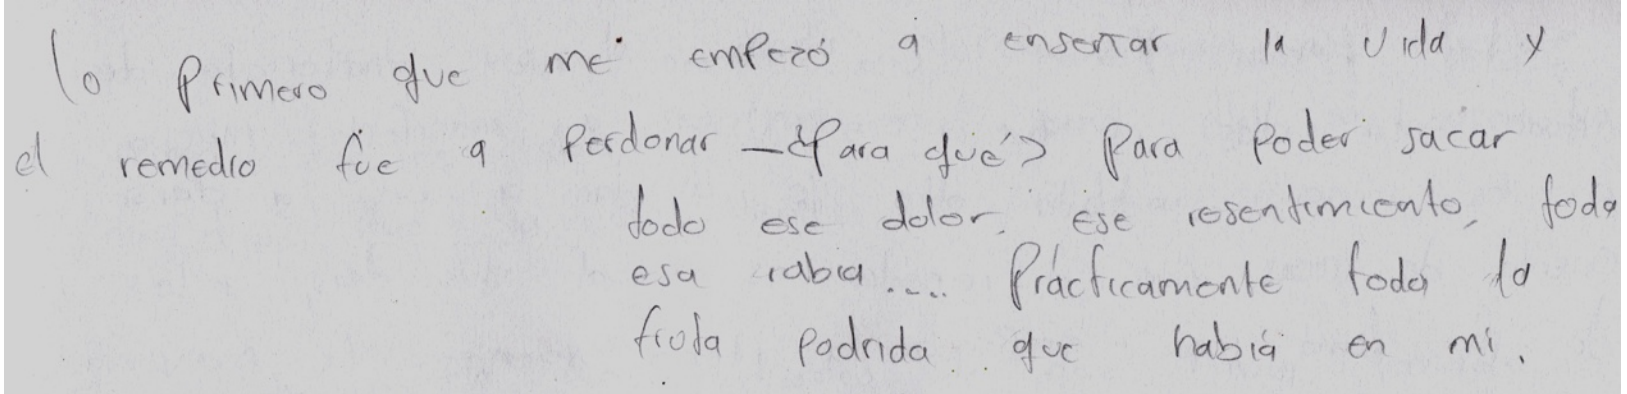 lo Primero que me empezó a enseñar la vida y
el remedio fue a Perdonar - ¿Para qué? Para Poder sacar
todo ese dolor, ese resentimiento, toda
esa rabia.... Prácticamente toda la
fruta Podrida que había en mi.